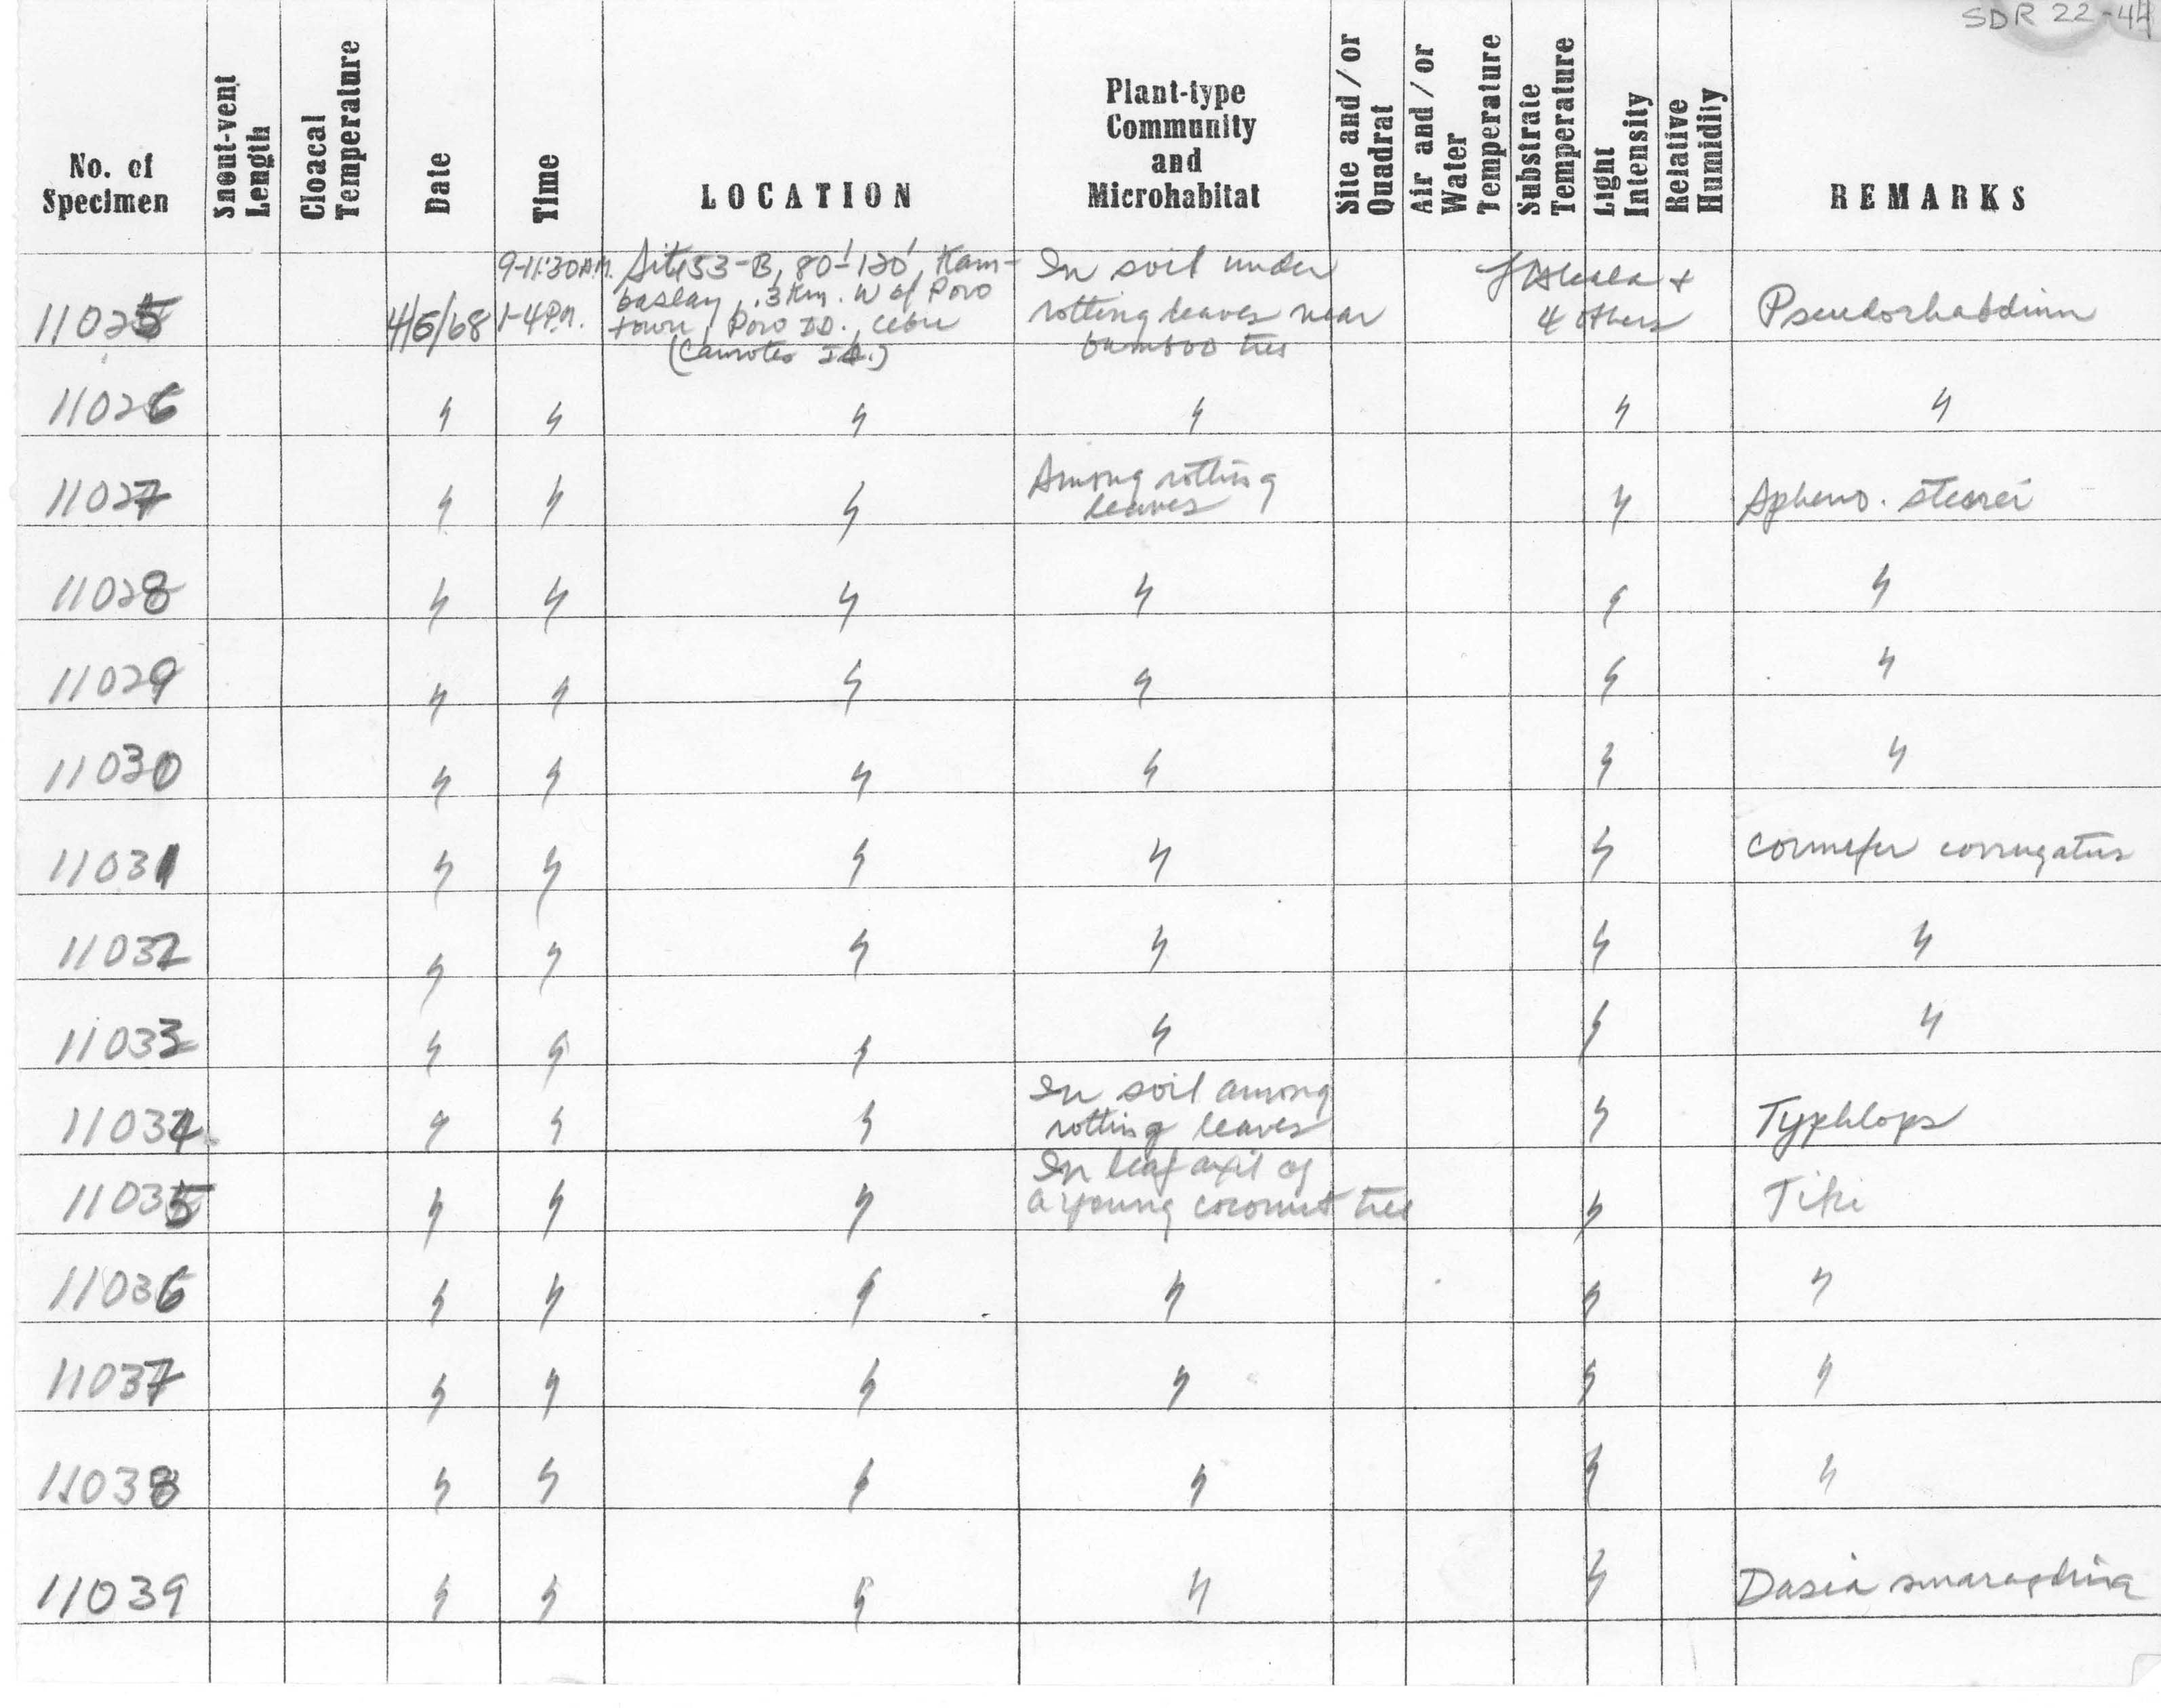 SDR 22-44
No. of Specimen | Snout-vent Length | Cloacal Temperature | Date | Time | LOCATION | Plant-type Community and Microhabitat | Site and/or Quadrat | Air and/or Water Temperature | Substrate Temperature | Light Intensity | Relative Humidity | REMARKS
11025 | 4/5/68 | 9-11:30 A.M. 1-4 P.M. | Site 53-B, 80'-120', Kam- | In soil under | Alcala + | Pseudorhabdium
baslay, .3 Km. W of Poro | rotting leaves near | 4 others
town, Poro Id., Cebu | bamboo tree
(Camotes Is.)
11026 | " | " | " | " | " | "
11027 | " | " | " | Among rotting leaves | " | Spheno. steerei
11028 | " | " | " | " | " | "
11029 | " | " | " | " | " | "
11030 | " | " | " | " | " | "
11031 | " | " | " | " | " | Cornufer corrugatus
11032 | " | " | " | " | " | "
11033 | " | " | " | " | " | "
11034 | " | " | " | In soil among rotting leaves | " | Typhlops
11035 | " | " | " | In leaf axil of a young coconut tree | " | Tiki
11036 | " | " | " | " | " | "
11037 | " | " | " | " | " | "
11038 | " | " | " | " | " | "
11039 | " | " | " | " | " | Dasia smaragdina